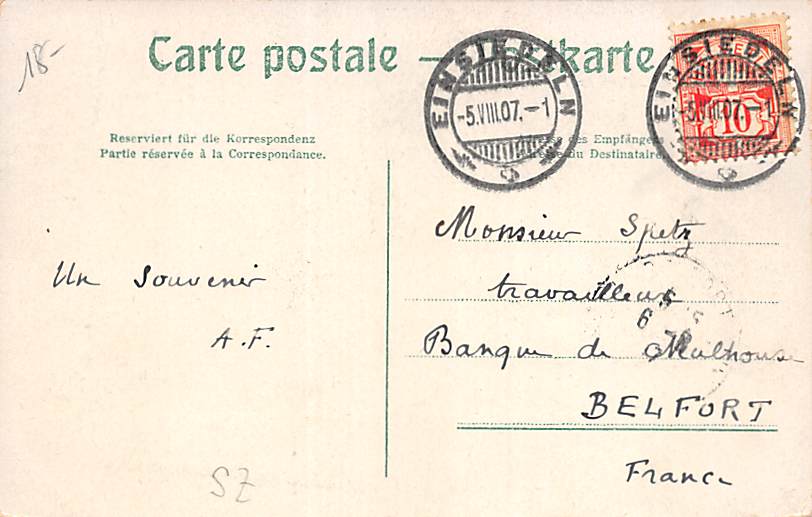 18-
Carte postale — Postkarte
EINSIEDELN
-5.VIII.07.-1
EINSIEDELN
-5.VIII.07.-1
10
Reserviert für die Korrespondenz
Partie réservée à la Correspondance.
des Empfängers
du Destinataire
Monsieur Spetz
Un Souvenir
travailleur
A.F.
Banque de Mulhouse
BELFORT
France
SZ